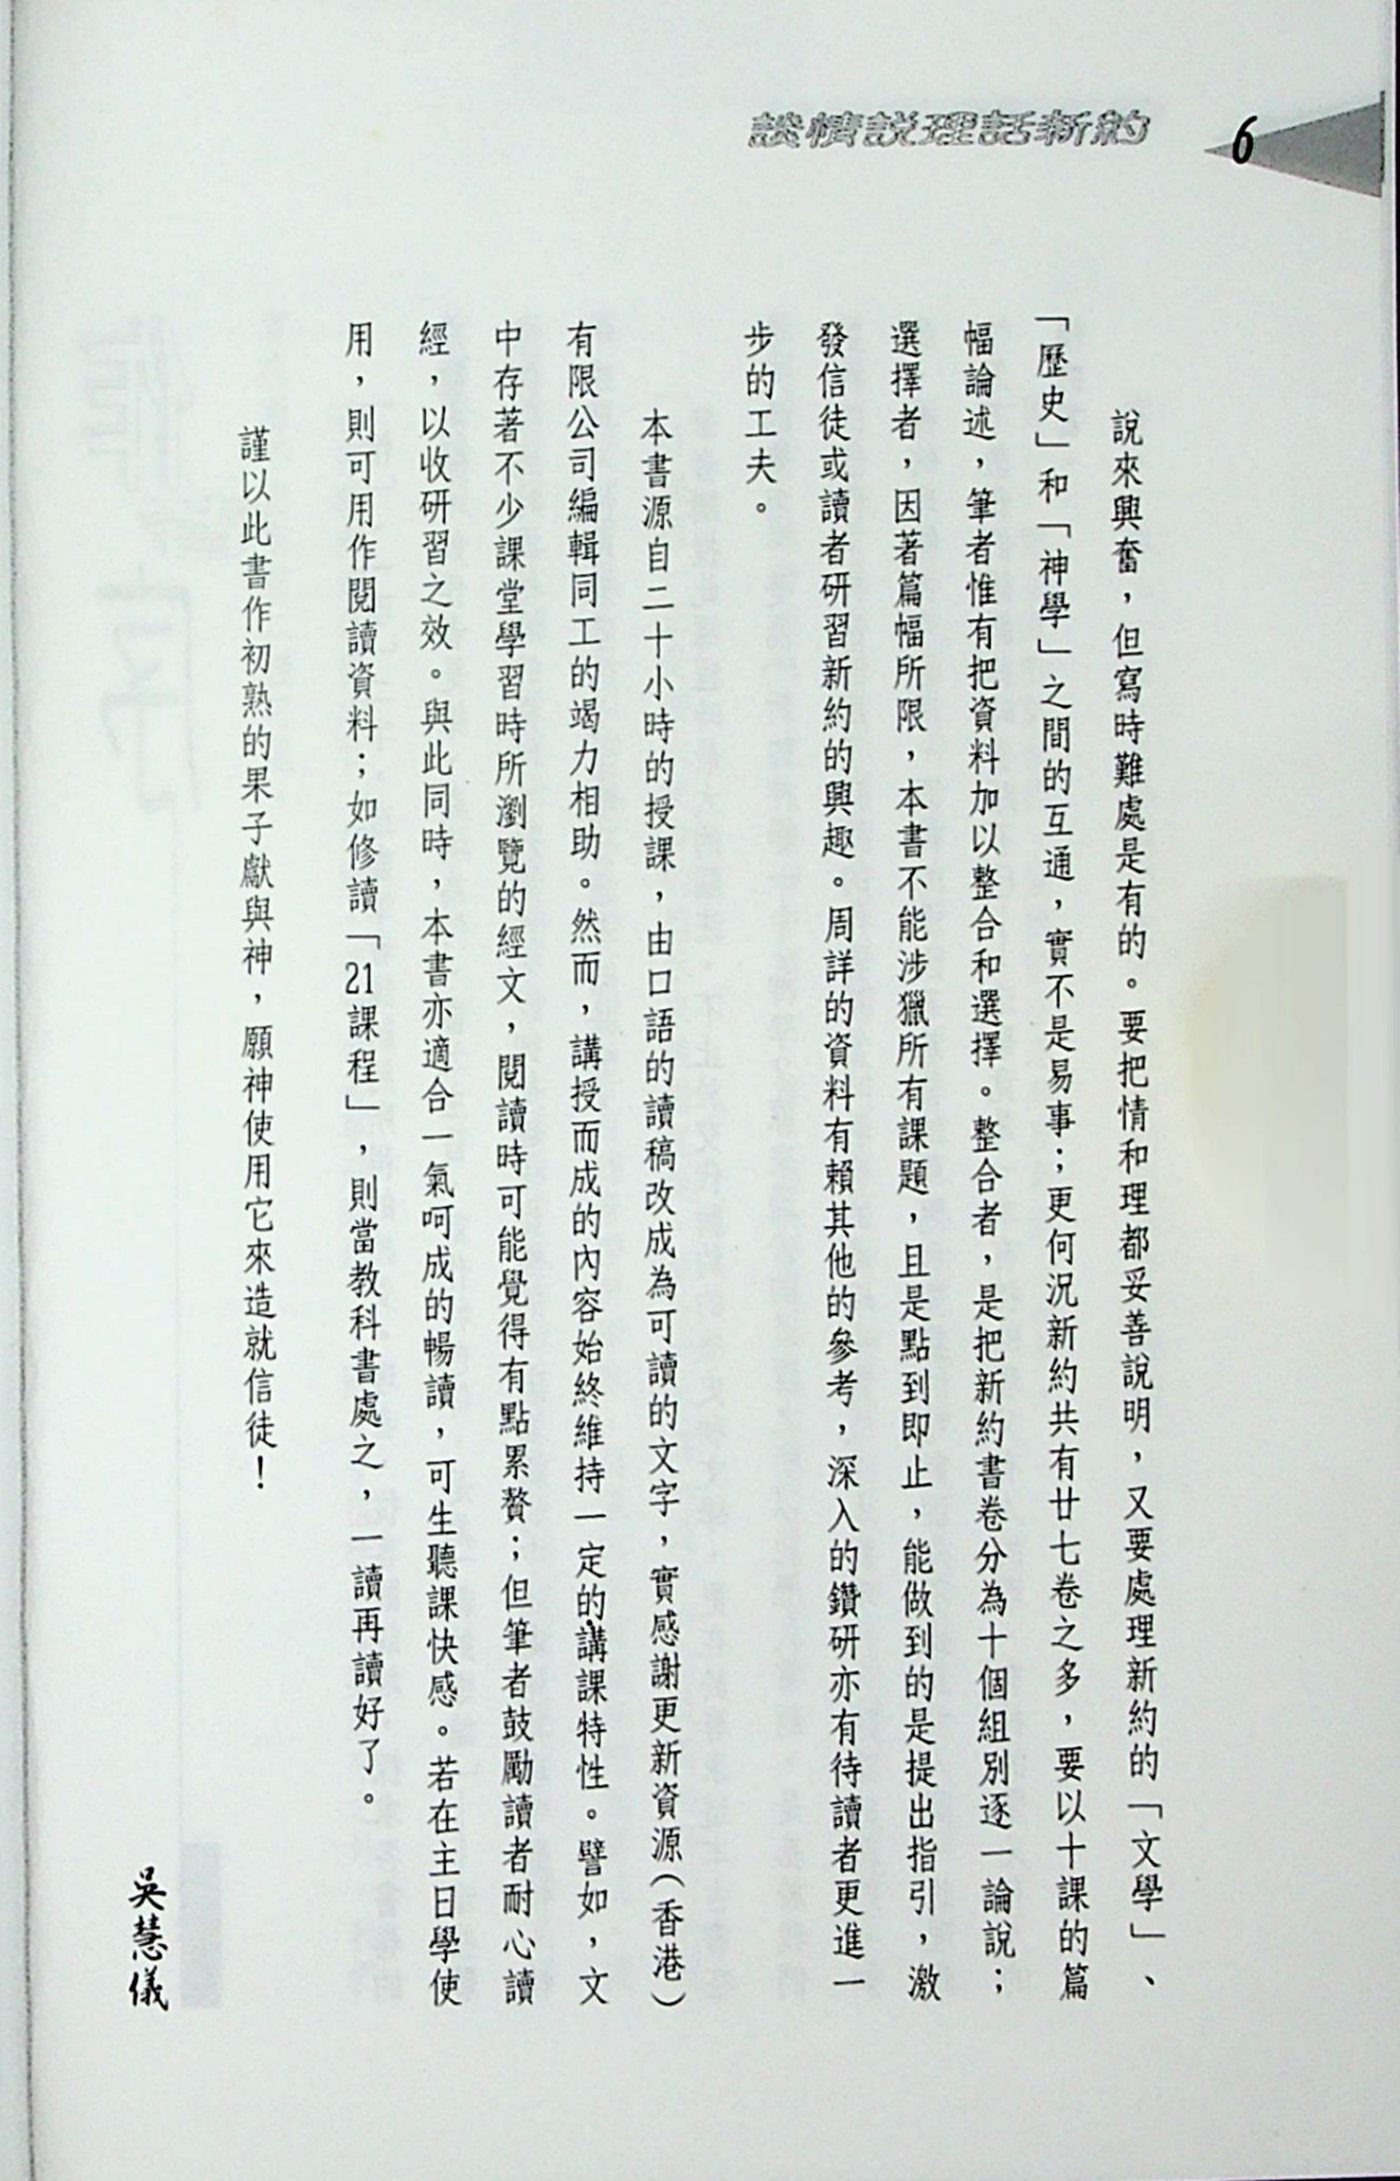 談情說理話新約
6
說來興奮，但寫時難處是有的。要把情和理都妥善說明，又要處理新約的「文學」、
「歷史」和「神學」之間的互通，實不是易事；更何況新約共有廿七卷之多，要以十課的篇
幅論述，筆者惟有把資料加以整合和選擇。整合者，是把新約書卷分為十個組別逐一論說；
選擇者，因著篇幅所限，本書不能涉獵所有課題，且是點到即止，能做到的是提出指引，激
發信徒或讀者研習新約的興趣。周詳的資料有賴其他的參考，深入的鑽研亦有待讀者更進一
步的工夫。
本書源自二十小時的授課，由口語的讀稿改成為可讀的文字，實感謝更新資源（香港）
有限公司編輯同工的竭力相助。然而，講授而成的內容始終維持一定的講課特性。譬如，文
中存著不少課堂學習時所瀏覽的經文，閱讀時可能覺得有點累贅；但筆者鼓勵讀者耐心讀
經，以收研習之效。與此同時，本書亦適合一氣呵成的暢讀，可生聽課快感。若在主日學使
用，則可用作閱讀資料；如修讀「21課程」，則當教科書處之，一讀再讀好了。
謹以此書作初熟的果子獻與神，願神使用它來造就信徒！
吳慧儀